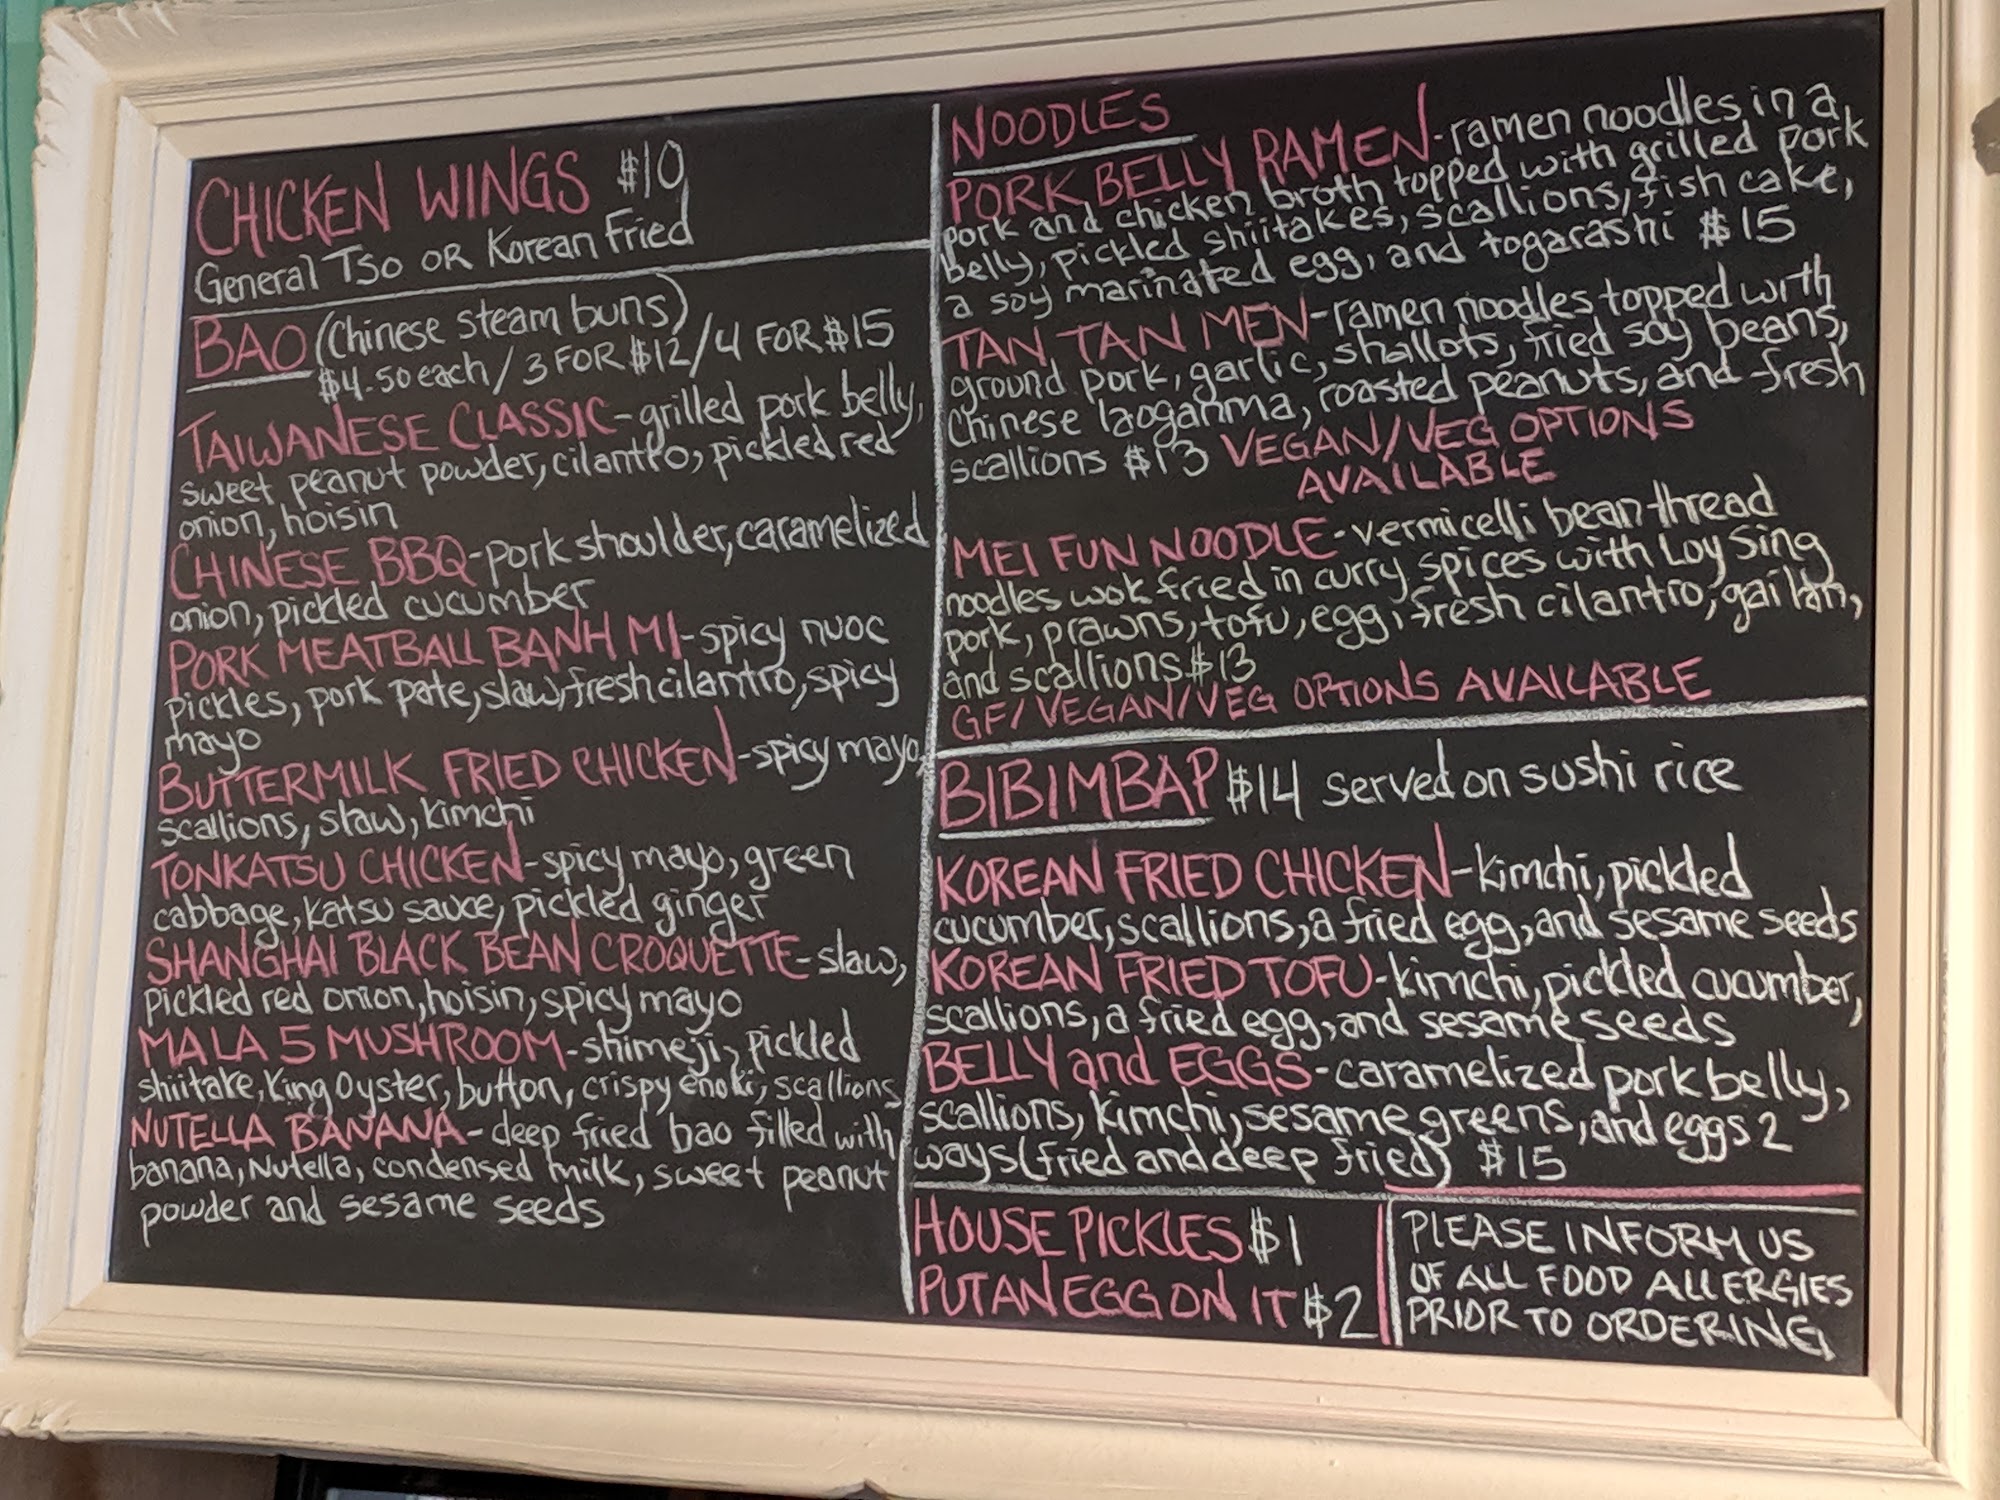 CHICKEN WINGS $10
General TSO OR Korean Fried
BAO (Chinese steam buns)
$4.50 each / 3 FOR $12 / 4 FOR $15
TAIWANESE CLASSIC - grilled pork belly,
sweet peanut powder, cilantro, pickled red
onion, hoisin
CHINESE BBQ - pork shoulder, caramelized
onion, pickled cucumber
PORK MEATBALL BANH MI - spicy nuoc
pickles, pork pate, slaw, fresh cilantro, spicy
mayo
BUTTERMILK FRIED CHICKEN - spicy mayo,
scallions, slaw, kimchi
TONKATSU CHICKEN - spicy mayo, green
cabbage, katsu sauce, pickled ginger
SHANGHAI BLACK BEAN CROQUETTE - slaw,
pickled red onion, hoisin, spicy mayo
MALA 5 MUSHROOM - shimeji, pickled
shiitake, King Oyster, button, crispy enoki, scallions
NUTELLA BANANA - deep fried bao filled with
banana, Nutella, condensed milk, sweet peanut
powder and sesame seeds
NOODLES
PORK BELLY RAMEN - ramen noodles in a
pork and chicken broth topped with grilled pork
belly, pickled shiitakes, scallions, fish cake,
a soy marinated egg, and togarashi $15
TAN TAN MEN - ramen noodles topped with
ground pork, garlic, shallots, fried soy beans,
Chinese laoganma, roasted peanuts, and fresh
scallions $13 VEGAN/VEG OPTIONS
AVAILABLE
MEI FUN NOODLE - vermicelli bean thread
noodles wok fried in curry spices with Loy Sing
pork, prawns, tofu, egg, fresh cilantro, gai lan,
and scallions $13
GF/VEGAN/VEG OPTIONS AVAILABLE
BIBIMBAP $14 served on sushi rice
KOREAN FRIED CHICKEN - kimchi, pickled
cucumber, scallions, a fried egg, and sesame seeds
KOREAN FRIED TOFU - kimchi, pickled cucumber,
scallions, a fried egg, and sesame seeds
BELLY and EGGS - caramelized pork belly,
scallions, kimchi, sesame greens, and eggs 2
ways (fried and deep fried) $15
HOUSE PICKLES $1
PUT AN EGG ON IT $2
PLEASE INFORM US
OF ALL FOOD ALLERGIES
PRIOR TO ORDERING,